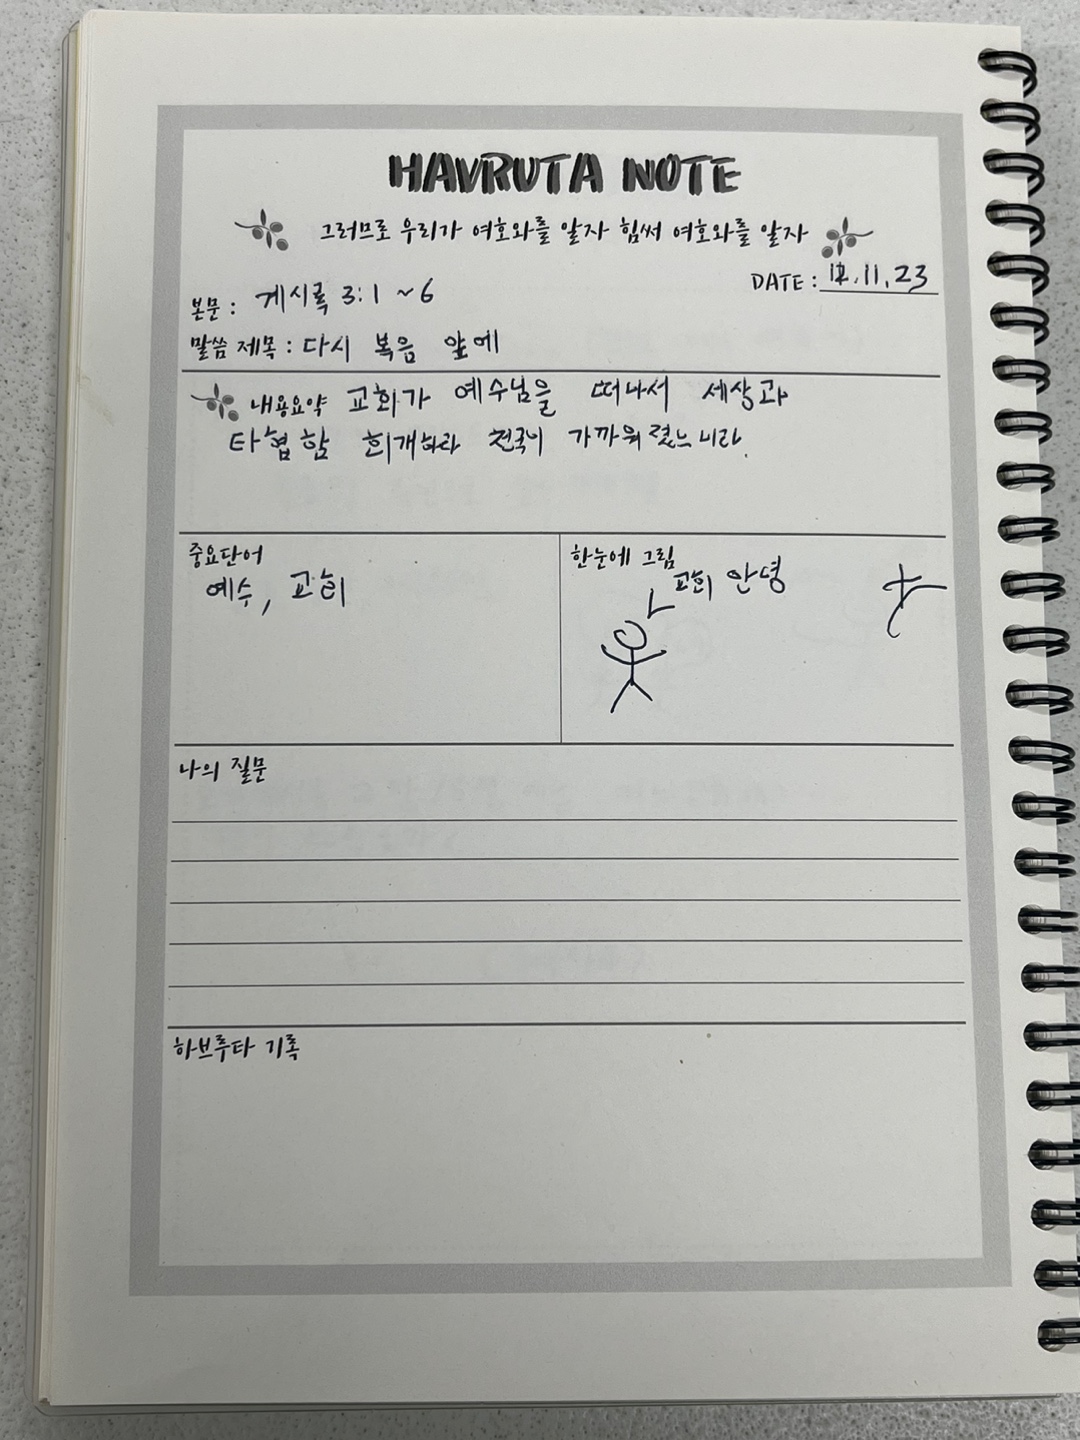 HAVRUTA NOTE
그러므로 우리가 여호와를 알자 힘써 여호와를 알자
DATE: 11.23
본문: 계시록 3:1 ~6
말씀 제목: 다시 복음 앞에
내용요약 교회가 예수님을 떠나서 세상과
타협함 회개하라 천국이 가까워졌느니라.
중요단어
예수, 교회
한눈에 그림
교회 안녕
나의 질문
하브루타 기록